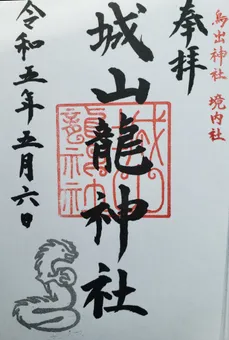 鳥出神社 境内社
奉拝
城山龍神社
令和五年五月六日